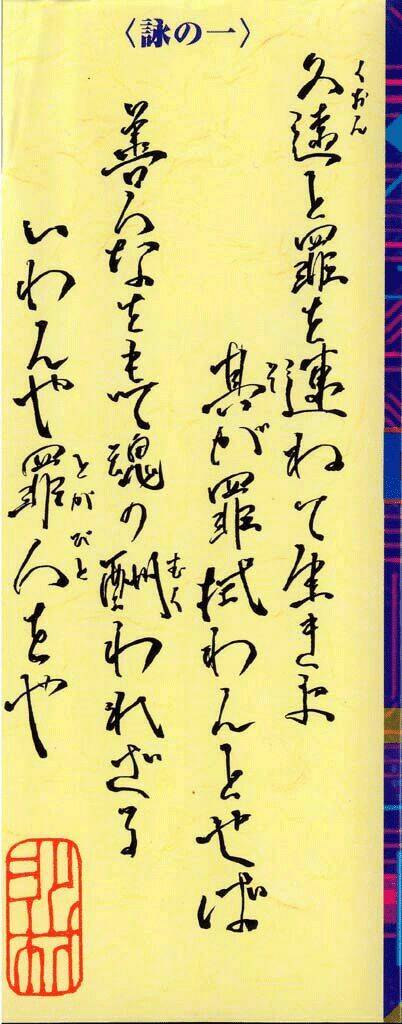 〈詠の一〉
久遠と罪を連ねて生き
其が罪拭わんとせば
善人なをもて魂の酬われざる
いわんや罪人をや
くおん
そ
むく
とがびと